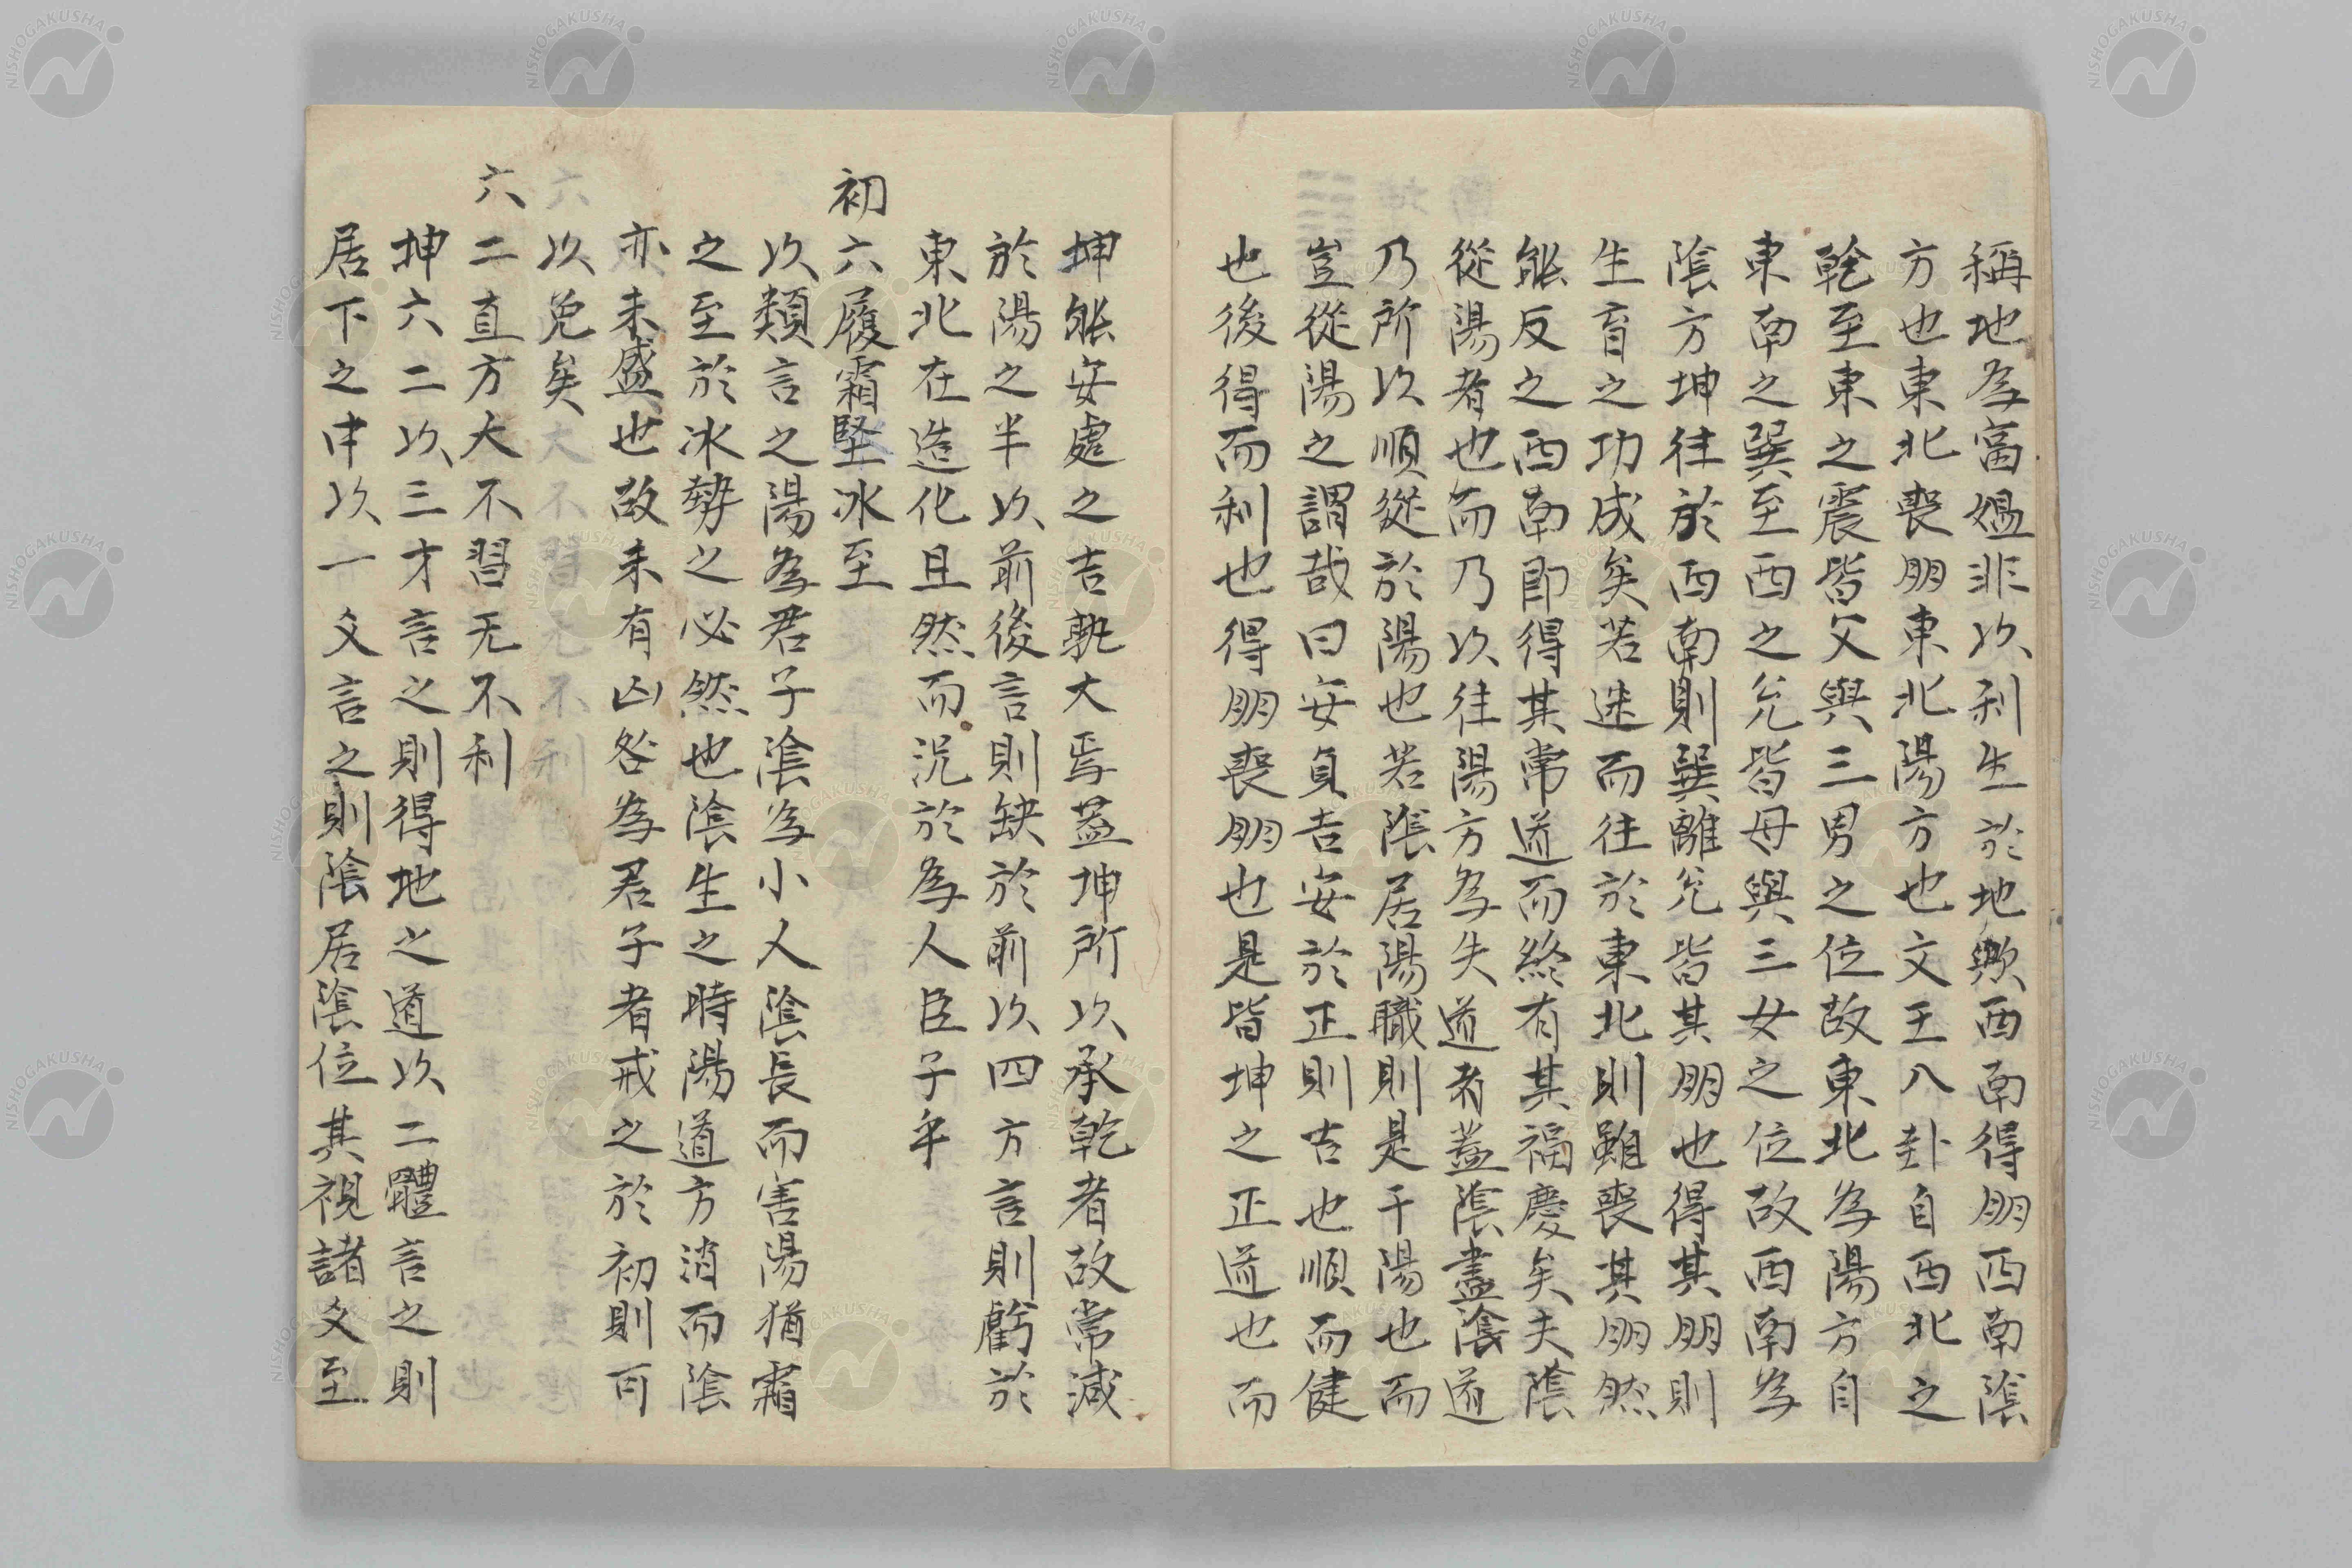 稱地為富媼非以利生於地歟西南得朋西南陰
方也東北喪朋東北陽方也文王八卦自西北之
乾至東之震皆父與三男之位故東北為陽方自
東南之巽至西之兌皆母與三女之位故西南為
陰方坤往於西南則巽離兌皆其朋也得其朋則
生育之功成矣若迷而往於東北則雖喪其朋然
能反之西南即得其常道而終有其福慶矣夫陰
從陽者也而乃以往陽方為失道者蓋陰盡陰道
乃所以順從於陽也若陰居陽職則是干陽也而
豈從陽之謂哉曰安貞吉安於正則吉也順而健
也後得而利也得朋喪朋也是皆坤之正道也而
坤能安處之吉孰大焉蓋坤所以承乾者故常減
於陽之半以前後言則缺於前以四方言則虧於
東北在造化且然而況於為人臣子乎
初六履霜堅冰至
以類言之陽為君子陰為小人陰長而害陽猶霜
之至於冰勢之必然也陰生之時陽道方消而陰
亦未盛也故未有凶咎為君子者戒之於初則可
以免矣
六二直方大不習无不利
坤六二以三才言之則得地之道以二體言之則
居下之中以一爻言之則陰居陰位其視諸爻至
NISHOGAKUSHA